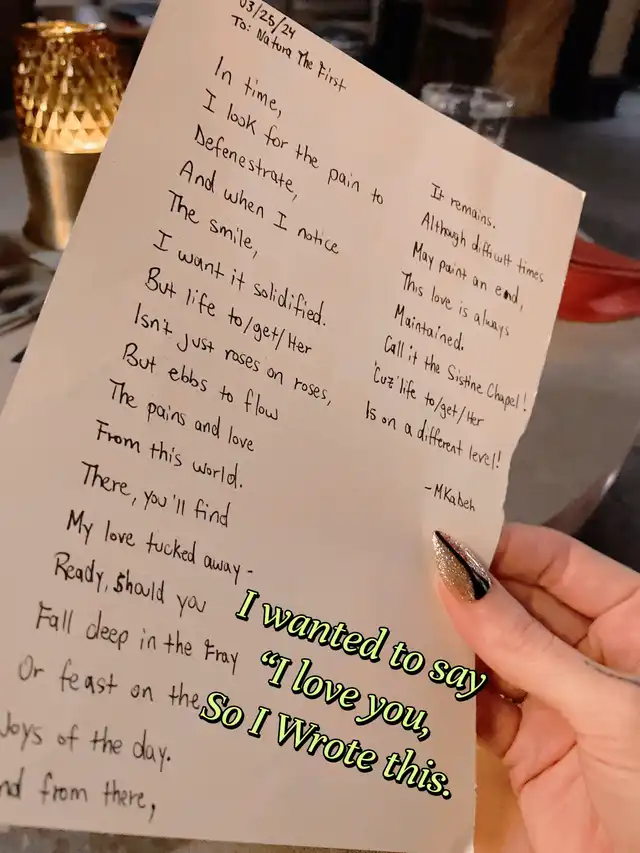 03/25/24
To: Natura The First
In time,
I look for the pain to
Defenestrate,
And when I notice
The smile,
I want it solidified.
But life to/get/Her
Isn't just roses on roses,
But ebbs to flow
The pains and love
From this world.
There, you'll find
My love tucked away-
Ready, should you
Fall deep in the Fray
Or feast on the
Joys of the day.
nd from there,
It remains.
Although difficult times
May paint an end,
This love is always
Maintained.
Call it the Sistine Chapel!
'Cuz' life to/get/Her
Is on a different level!
-MKabeh
I wanted to say
“I love you,
So I Wrote this.